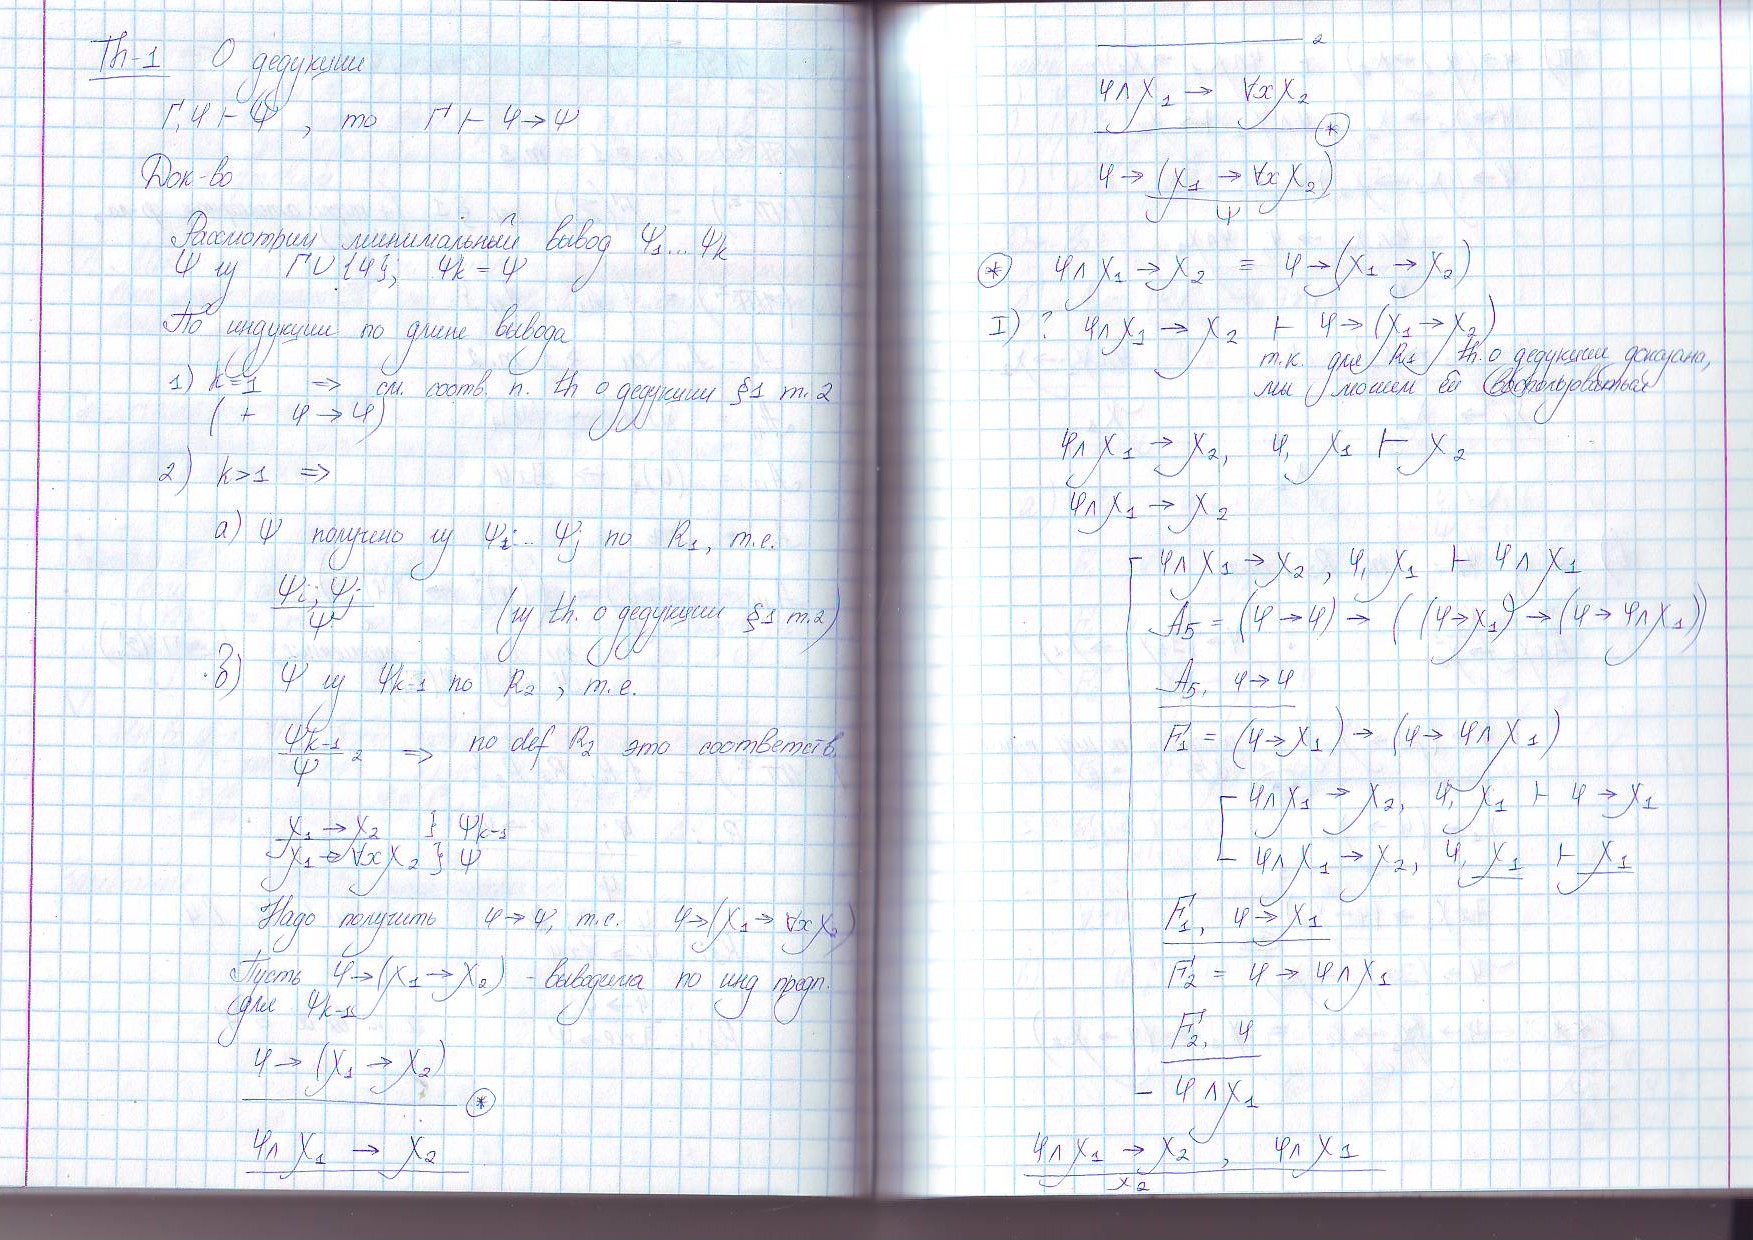 Th-1 О дедукции
Γ, φ ⊢ Ψ, то Γ ⊢ φ → Ψ
Док-во
Рассмотрим минимальный вывод Ψ₁...Ψk
Ψ из Γ∪{φ}; Ψk = Ψ
По индукции по длине вывода
1) k=1 ⇒ см. соотв. п. th о дедукции §1 т.2
(+ φ → φ)
2) k>1 ⇒
а) Ψ получено из Ψi.. Ψj по R₁, т.е.
Ψi; Ψj
Ψ
(из th. о дедукции §1 т.2)
в) Ψ из Ψk-1 по R₂, т.е.
Ψk-1
Ψ 2 ⇒ по def R₂ это соответств.
χ₁ → χ₂ } Ψk-1
χ₁ → ∀xχ₂ } Ψ
Надо получить φ → Ψ, т.е. φ→(χ₁ → ∀xχ₂)
Пусть φ→(χ₁ → χ₂) - выводима по инд предп.
для Ψk-1
φ → (χ₁ → χ₂)
⊛
φ∧χ₁ → χ₂
2
φ∧χ₁ → ∀xχ₂
⊛
φ → (χ₁ → ∀xχ₂)
Ψ
⊛ φ∧χ₁ → χ₂ ≡ φ→(χ₁ → χ₂)
I) ? φ∧χ₁ → χ₂ ⊢ φ→(χ₁→χ₂)
т.к. для R₁ th. о дедукции доказана,
мы можем ей воспользоваться
φ∧χ₁ → χ₂, φ, χ₁ ⊢ χ₂
φ∧χ₁ → χ₂
φ∧χ₁ → χ₂, φ, χ₁ ⊢ φ∧χ₁
A₅ = (φ→φ) → ((φ→χ₁) → (φ→φ∧χ₁))
A₅, φ→φ
F₁ = (φ→χ₁) → (φ→ φ∧χ₁)
φ∧χ₁ → χ₂, φ, χ₁ ⊢ φ → χ₁
φ∧χ₁ → χ₂, φ, χ₁ ⊢ χ₁
F₁, φ → χ₁
F₂ = φ → φ∧χ₁
F₂, φ
- φ∧χ₁
φ∧χ₁ → χ₂, φ∧χ₁
χ₂